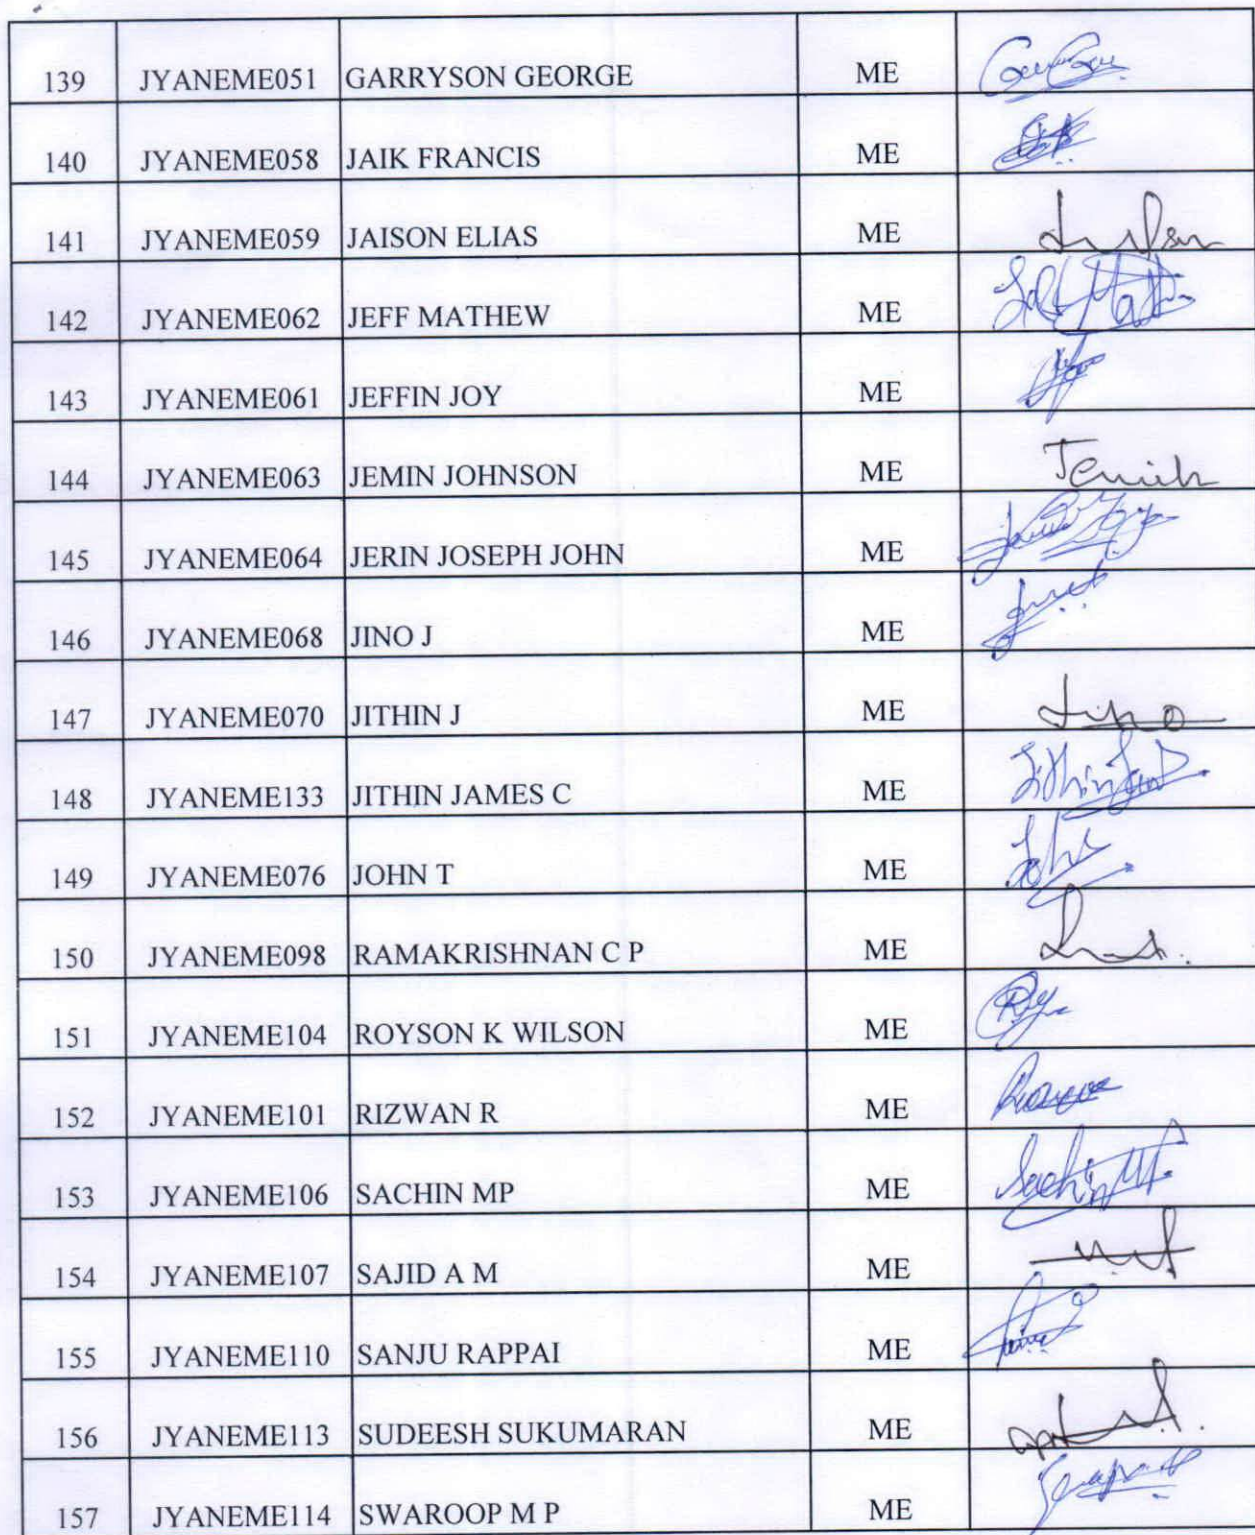 139 JYANEME051 GARRYSON GEORGE ME
140 JYANEME058 JAIK FRANCIS ME
141 JYANEME059 JAISON ELIAS ME
142 JYANEME062 JEFF MATHEW ME
143 JYANEME061 JEFFIN JOY ME
144 JYANEME063 JEMIN JOHNSON ME
145 JYANEME064 JERIN JOSEPH JOHN ME
146 JYANEME068 JINO J ME
147 JYANEME070 JITHIN J ME
148 JYANEME133 JITHIN JAMES C ME
149 JYANEME076 JOHN T ME
150 JYANEME098 RAMAKRISHNAN C P ME
151 JYANEME104 ROYSON K WILSON ME
152 JYANEME101 RIZWAN R ME
153 JYANEME106 SACHIN MP ME
154 JYANEME107 SAJID A M ME
155 JYANEME110 SANJU RAPPAI ME
156 JYANEME113 SUDEESH SUKUMARAN ME
157 JYANEME114 SWAROOP M P ME